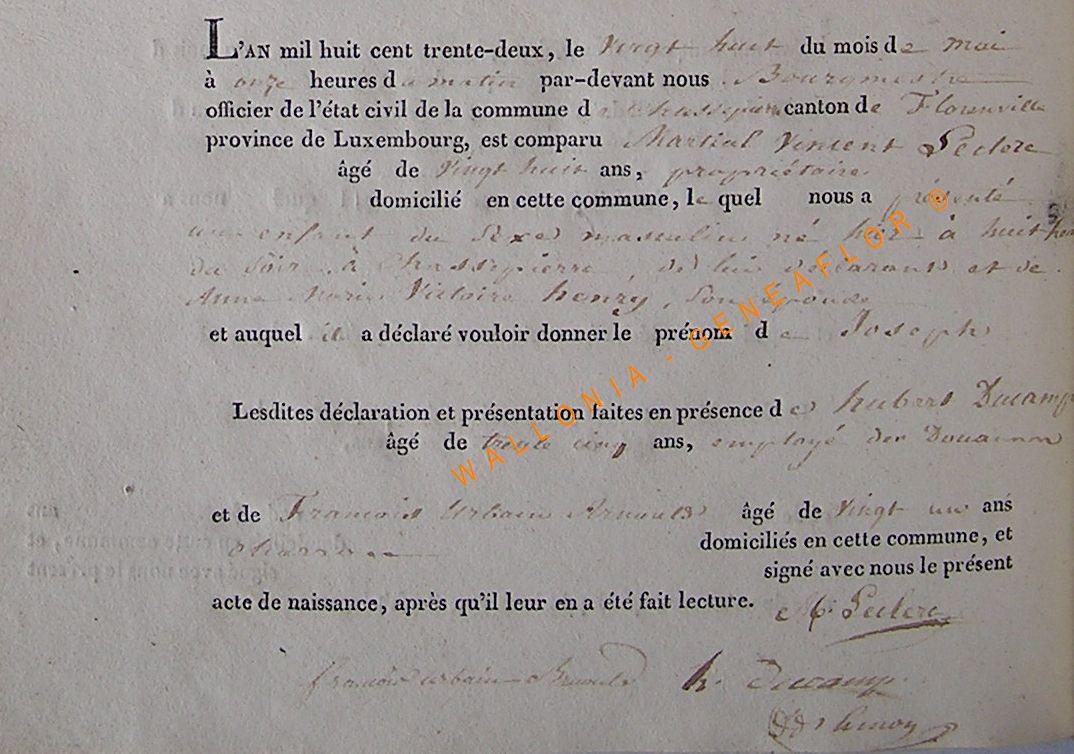 L'AN mil huit cent trente-deux, le vingt huit du mois de mai
à onze heures du matin par-devant nous Bourgmestre
officier de l'état civil de la commune de Chassepierre canton de Florenville
province de Luxembourg, est comparu Martial Vincent Leclere
âgé de vingt huit ans, propriétaire
domicilié en cette commune, le quel nous a présenté
un enfant du sexe masculin né hier à huit heu
du soir à Chassepierre, de lui déclarant et de
Anne Marie Victoire henry, son épouse
et auquel il a déclaré vouloir donner le prénom de Joseph
Lesdites déclaration et présentation faites en présence de hubert Ducamp
âgé de trente cinq ans, employé des Douannes
et de François Urbain âgé de vingt un ans
domiciliés en cette commune, et
signé avec nous le présent
acte de naissance, après qu'il leur en a été fait lecture.
M. Leclere
françois urbain h. Ducamp
WALLONIA - GENEAFLOR ©